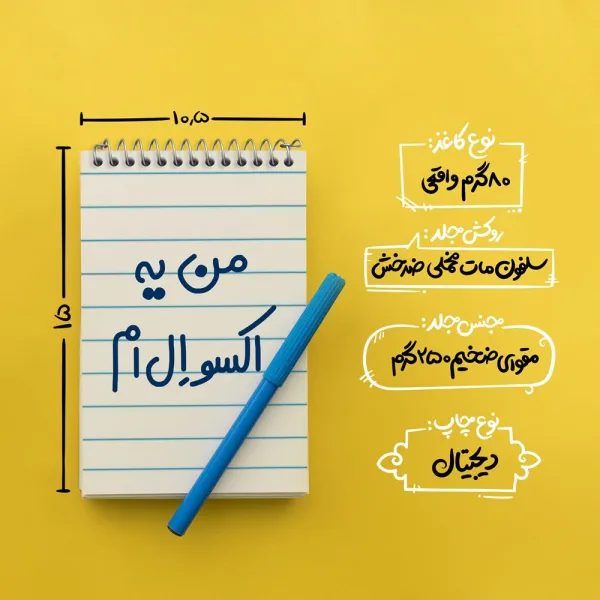 ۱۰٫۵
۱۵
من یه
اکسو اِل ام
نوع کاغذ:
۸۰گرم واقعی
روکش جلد:
سلفون مات مخملی ضدخش
جنس جلد:
مقوای ضخیم ۲۵۰گرم
نوع چاپ:
دیجیتال